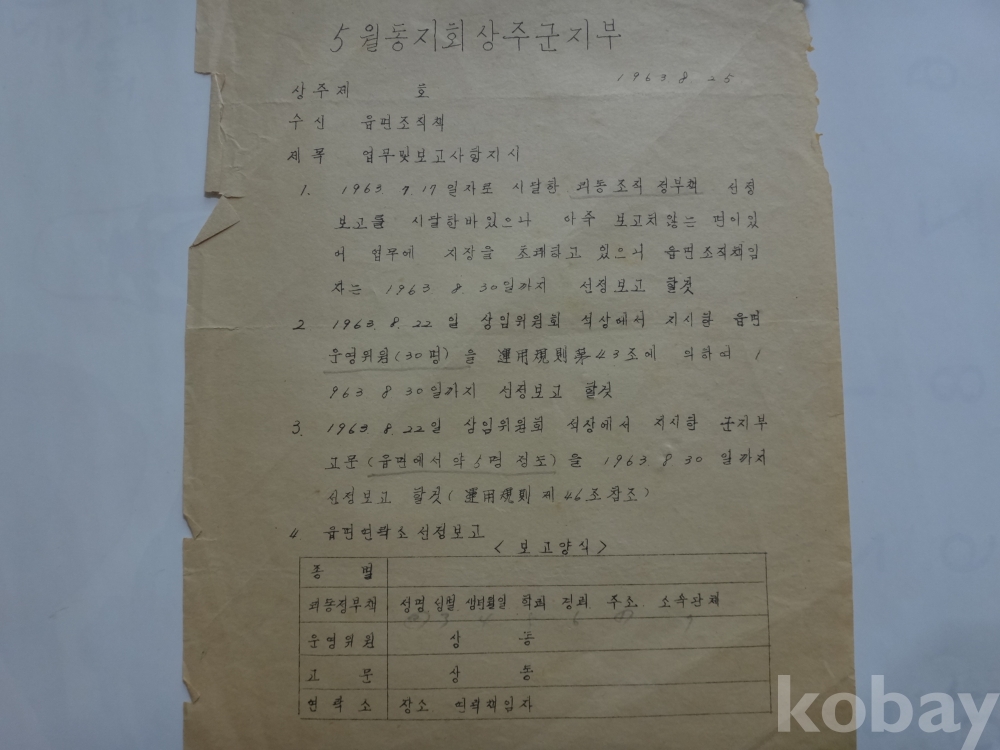 5월동지회상주군지부
1963 8 25
상주제 호
수신 읍면조직책
제목 업무및보고사항지시
1. 1963 7.17일자로 시달한 리동조직 정부책 선정
보고를 시달한바있으나 아주 보고치않는 면이있
어 업무에 지장을 초래하고 있으니 읍면조직책임
자는 1963. 8.30일까지 선정보고 할것
2 1963. 8.22 일 상임위원회 석상에서 지시한 읍면
운영위원(30명)을 運用規則第43조에 의하여 1
963 8 30일까지 선정보고 할것
3. 1963 8.22일 상임위원회 석상에서 지시한 군지부
고문(읍면에서 약5명 정도)을 1963. 8 30 일까지
선정보고 할것(運用規則 제46조참조)
4 읍면연락소선정보고
<보고양식>
종별
리동정부책 성명 성별 생년월일 학력 경력 주소. 소속관계
운영위원 상 동
고문 상 동
연락소 장소 연락책임자
kobay